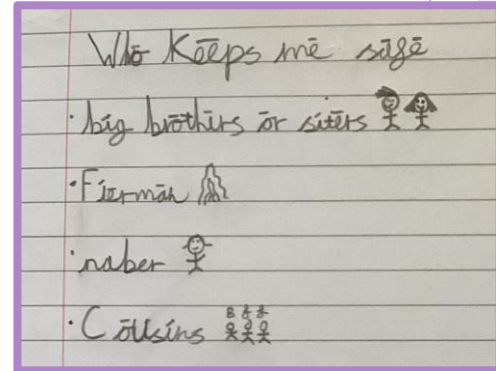 Who Keeps me safe
· big brothirs or siters
· Fierman
· naber
· Cousins